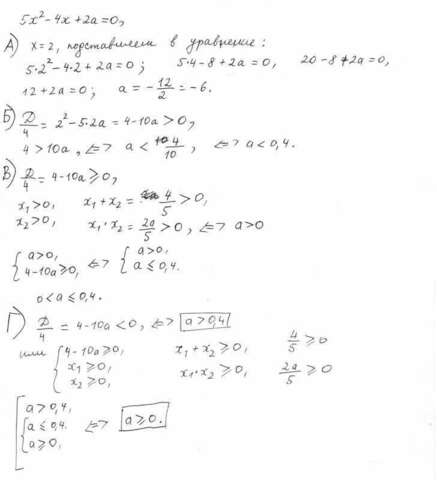 5x² - 4x + 2a = 0,
А) x = 2, подставляем в уравнение:
5·2² - 4·2 + 2a = 0; 5·4 - 8 + 2a = 0, 20 - 8 + 2a = 0,
12 + 2a = 0; a = -12/2 = -6.
Б) Д/4 = 2² - 5·2a = 4 - 10a > 0,
4 > 10a, <=> a < 4/10, <=> a < 0,4.
В) Д/4 = 4 - 10a ≥ 0,
x₁ > 0, x₁ + x₂ = 4/5 > 0,
x₂ > 0, x₁·x₂ = 2a/5 > 0, <=> a > 0
{ a > 0, 4 - 10a ≥ 0, <=> { a > 0, a ≤ 0,4.
0 < a ≤ 0,4.
Г) Д/4 = 4 - 10a < 0, <=> a > 0,4
или { 4 - 10a ≥ 0, x₁ + x₂ ≥ 0, 4/5 ≥ 0
x₁ ≥ 0, x₁·x₂ ≥ 0, 2a/5 ≥ 0
x₂ ≥ 0,
[ a > 0,4,
{ a ≤ 0,4. <=> a ≥ 0.
a ≥ 0,